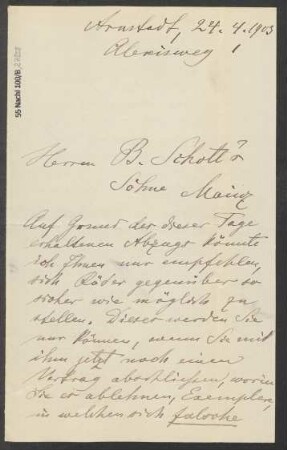 Arnstadt, 24. 4. 1903
Alexisweg 1
55 Nachl 100/B,
Herren B. Schott's
Söhne Mainz
Auf Grund der dieser Tage
erhaltenen Abzüge könnte
ich Ihnen nur empfehlen,
sich Röder gegenüber so
sicher wie möglich zu
stellen. Dieses werden Sie
nur können, wenn Sie mit
ihm jetzt noch einen
Vertrag abschließen, worin
Sie es ablehnen, Exemplare,
in welchen sich falsche